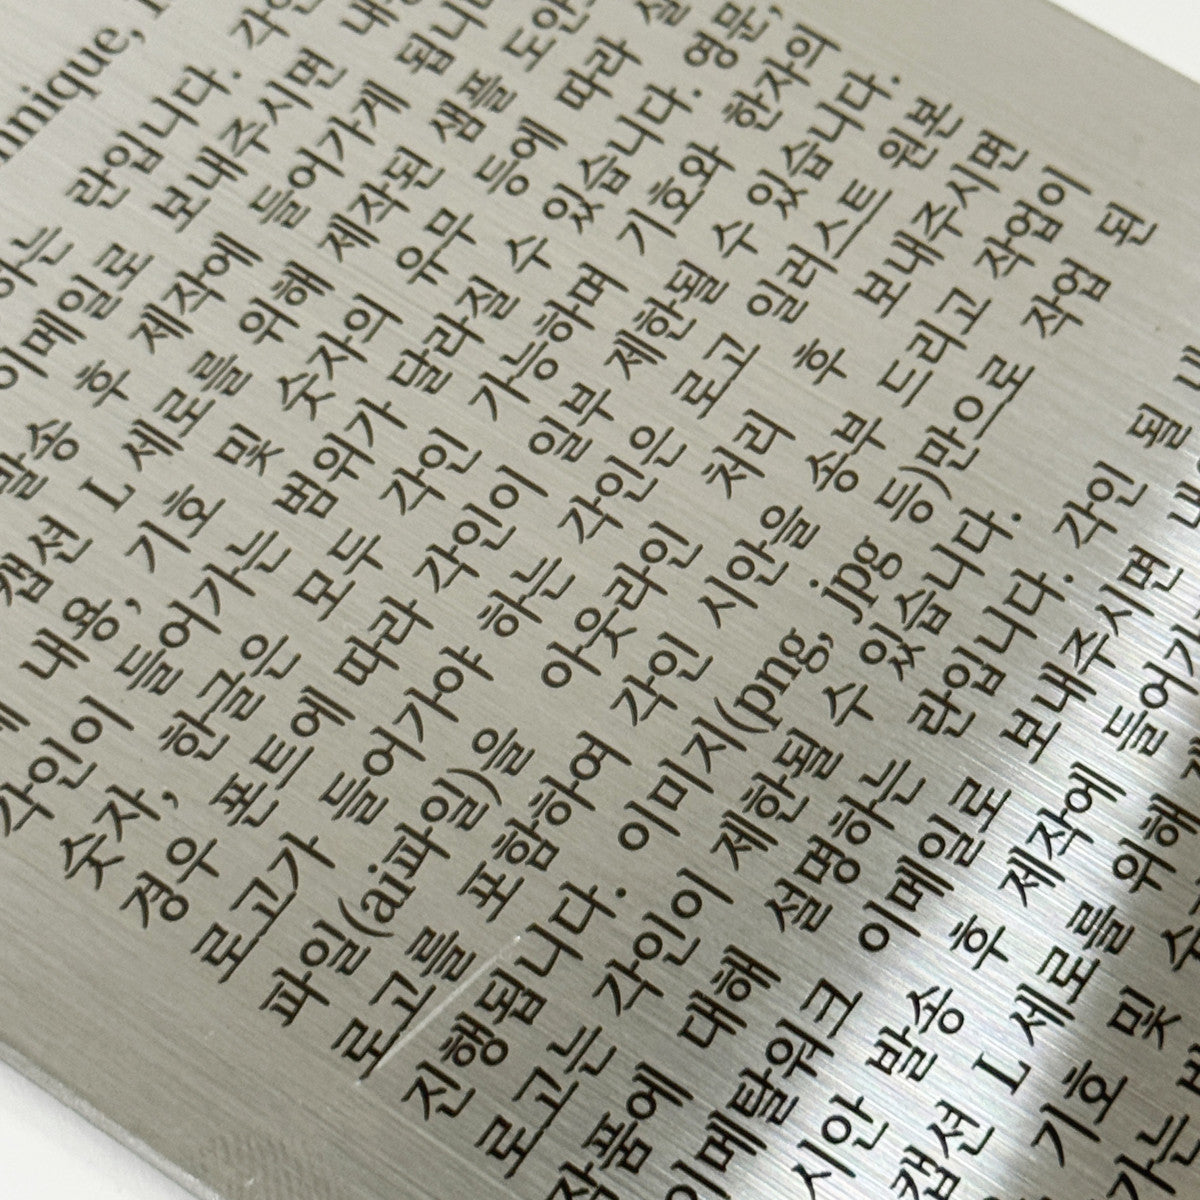 하는 란입니다. 각인
이메일로 보내주시면
발송 후 제작에 들어가게 됩니
캡션 L 세로를 위해 제작된 샘플 도안
내용, 기호 및 숫자의 유무 등에 따라 실
각인이 들어가는 범위가 달라질 수 있습니다. 영문,
숫자, 한글은 모두 각인 가능하며 기호와 한자의
경우 폰트에 따라 각인이 일부 제한될 수 있습니다.
로고가 들어가야 하는 각인은 로고 일러스트 원본
파일(ai파일)을 아웃라인 처리 후 보내주시면
로고를 포함하여 각인 시안을 송부 드리고 작업이
진행됩니다. 이미지(png, jpg 등)만으로 작업 된
로고는 각인이 제한될 수 있습니다.
작품에 대해 설명하는 란입니다. 각인 될 내
이메탈워크 이메일로 보내주시면 내
시안 발송 후 제작에 들어가
캡션 L 세로를 위해
기호 및 숫
가는 범